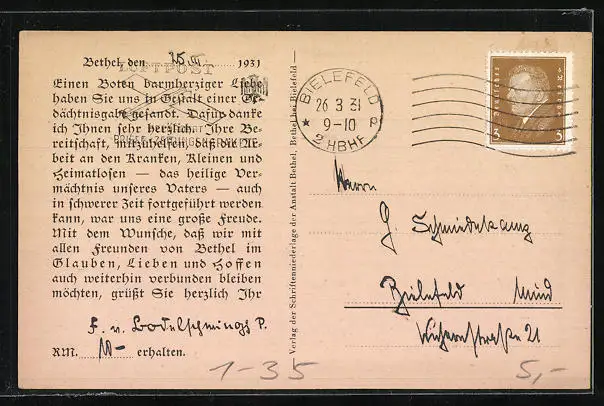 Bethel, den 25. III. 1931
LUFTPOST
Einen Boten barmherziger Liebe
haben Sie uns in Gestalt einer Ge-
dächtnisgabe gesandt. Dafür danke
ich Ihnen sehr herzlich. Ihre Be-
reitschaft, mitzuhelfen, daß die Ar-
beit an den Kranken, Kleinen und
Heimatlosen — das heilige Ver-
mächtnis unseres Vaters — auch
in schwerer Zeit fortgeführt werden
kann, war uns eine große Freude.
Mit dem Wunsche, daß wir mit
allen Freunden von Bethel im
Glauben, Lieben und Hoffen
auch weiterhin verbunden bleiben
möchten, grüßt Sie herzlich Ihr
F. v. Bodelschwingh P.
RM. 10- erhalten.
Verlag der Schriftenniederlage der Anstalt Bethel, Bethel bei Bielefeld
BIELEFELD
26 3 31
9-10
* 2 HBHF. p
Deutsches Reich
3 3
Herrn
G.
Bielefeld
21
1-35
5,-